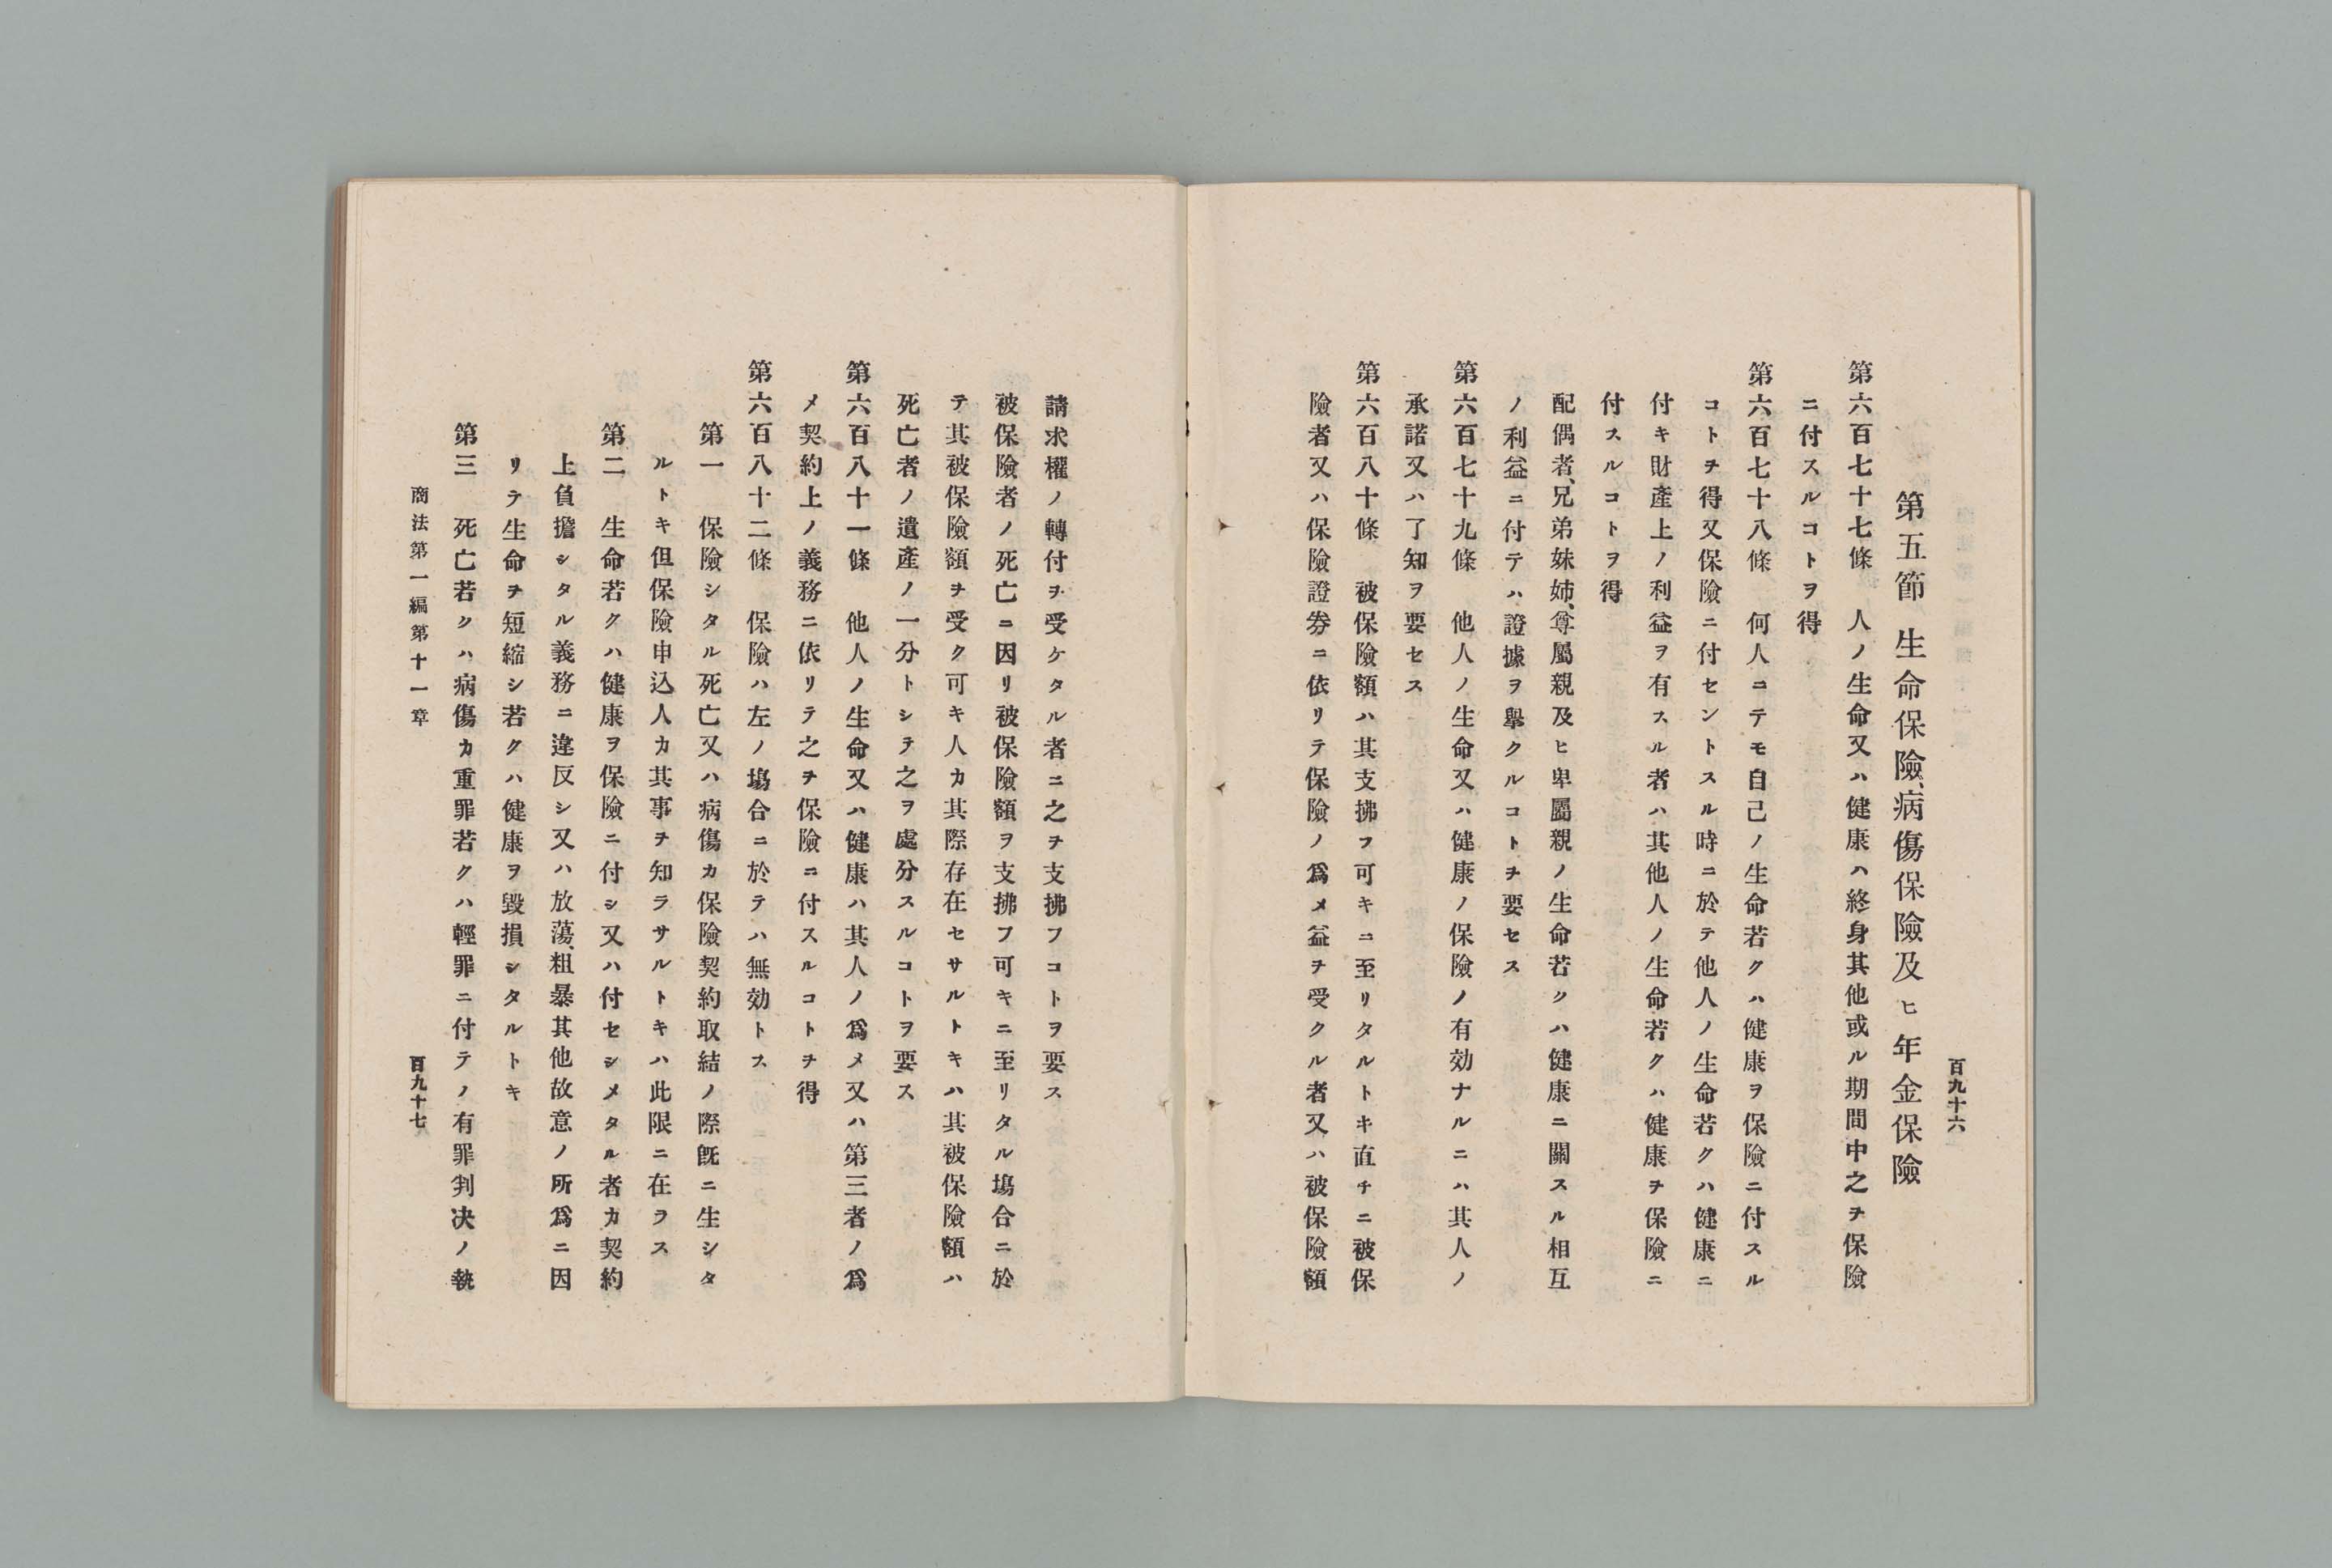 百九十六
第五節 生命保險、病傷保險及ヒ年金保險
第六百七十七條 人ノ生命又ハ健康ハ終身其他或ル期間中之ヲ保險
ニ付スルコトヲ得
第六百七十八條 何人ニテモ自己ノ生命若クハ健康ヲ保險ニ付スル
コトヲ得又保險ニ付セントスル時ニ於テ他人ノ生命若クハ健康ニ
付キ財產上ノ利益ヲ有スル者ハ其他人ノ生命若クハ健康ヲ保險ニ
付スルコトヲ得
配偶者、兄弟妹姉、尊屬親及ヒ卑屬親ノ生命若クハ健康ニ關スル相互
ノ利益ニ付テハ證據ヲ擧クルコトヲ要セス
第六百七十九條 他人ノ生命又ハ健康ノ保險ノ有効ナルニハ其人ノ
承諾又ハ了知ヲ要セス
第六百八十條 被保險額ハ其支拂フ可キニ至リタルトキ直チニ被保
險者又ハ保險證劵ニ依リテ保險ノ爲メ益ヲ受クル者又ハ被保險額
請求權ノ轉付ヲ受ケタル者ニ之ヲ支拂フコトヲ要ス
被保險者ノ死亡ニ因リ被保險額ヲ支拂フ可キニ至リタル塲合ニ於
テ其被保險額ヲ受ク可キ人カ其際存在セサルトキハ其被保險額ハ
死亡者ノ遺產ノ一分トシテ之ヲ處分スルコトヲ要ス
第六百八十一條 他人ノ生命又ハ健康ハ其人ノ爲メ又ハ第三者ノ爲
メ契約上ノ義務ニ依リテ之ヲ保險ニ付スルコトヲ得
第六百八十二條 保險ハ左ノ塲合ニ於テハ無効トス
第一 保險シタル死亡又ハ病傷カ保險契約取結ノ際旣ニ生シタ
ルトキ但保險申込人カ其事ヲ知ラサルトキハ此限ニ在ラス
第二 生命若クハ健康ヲ保險ニ付シ又ハ付セシメタル者カ契約
上負擔シタル義務ニ違反シ又ハ放蕩、粗暴其他故意ノ所爲ニ因
リテ生命ヲ短縮シ若クハ健康ヲ毀損シタルトキ
第三 死亡若クハ病傷カ重罪若クハ輕罪ニ付テノ有罪判決ノ執
商法第一編第十一章
百九十七